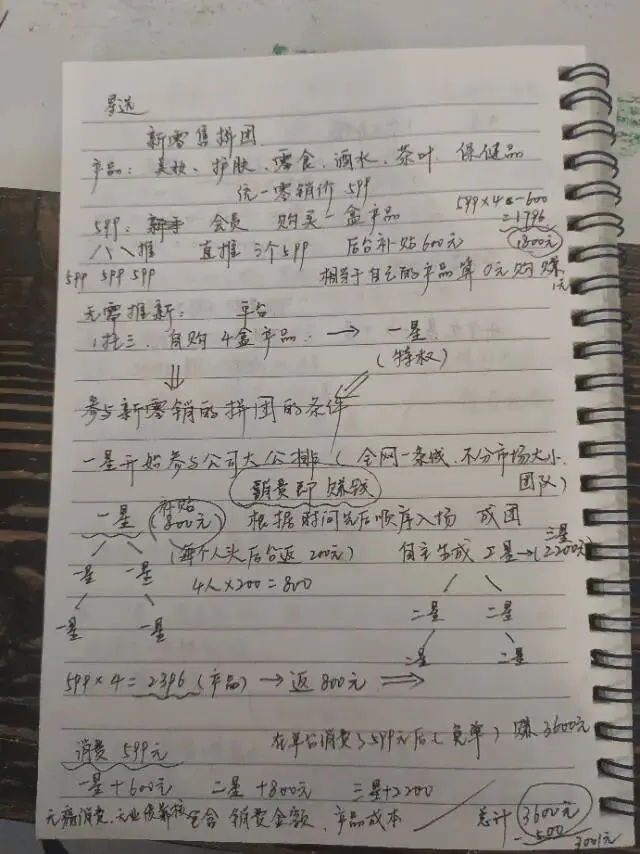 星选
新零售拼团
产品：美妆、护肤、零食、酒水、茶叶、保健品
统一零销价 599
599：新手 会员 购买一盒产品 599×4-600
=1796
推 直推 3个599 后台补贴600元 1800元
599 599 599 相当于自己的产品算0元购 赚
1元
无需推新： 平台
1拖三、自购4盒产品 → 一星
（特权）
参与新零销的拼团的条件
一星开始参与公司大公排（全网一条线、不分市场大小、
团队）
消费即赚钱
一星 （补贴800元） 根据时间先后顺序入场 成团
一星 一星 （每个人头后台返200元） 自主生成二星→（三星2200元）
4人×200=800
一星 一星 二星 二星
二星 二星
599×4=2396（产品）→返800元 ⇒
消费 599元 在平台消费了599元后（免单）赚3600元
一星+600元 二星+800元 三星+2200
包含 销售金额、产品成本 总计 3600元
3001元